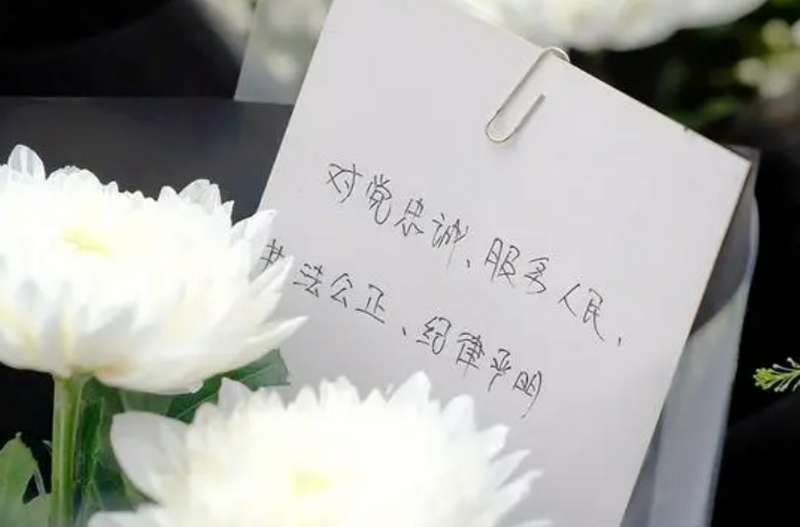 对党忠诚、服务人民、
法公正、纪律严明